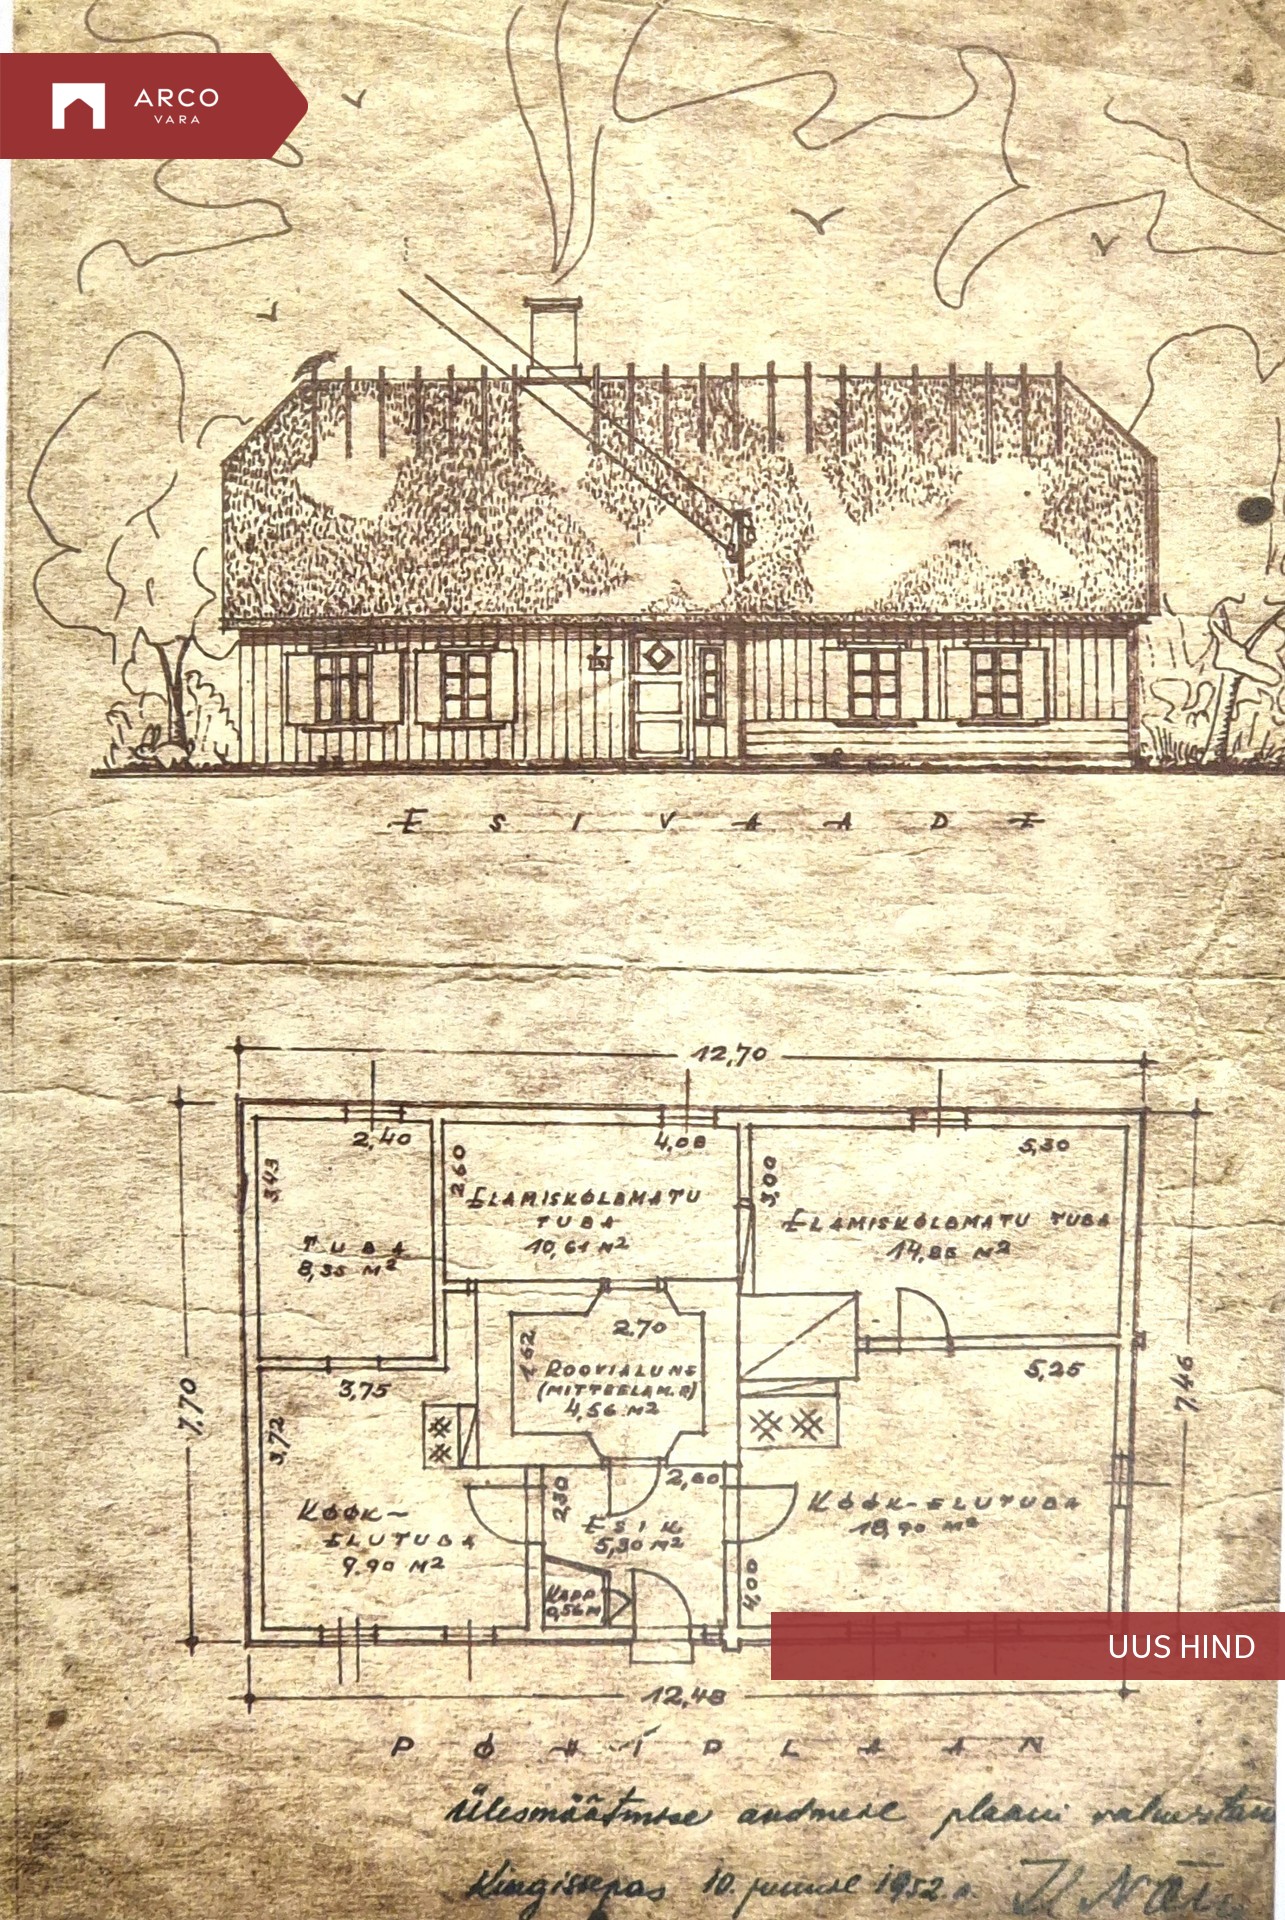 ARCO
VARA
ESIVAADE
12,70
2,40
4,08
5,30
3,43
2,60
3,00
ELAMISKÕLBMATU
TUBA
10,61 M²
ELAMISKÕLBMATU TUBA
14,85 M²
TUBA
8,35 M²
2.70
1,62
ROOVIALUNE
4,56 M²
3,75
5,25
7,70
7,46
3,72
2,60
KÖÖK-
ELUTUBA
9.90 M²
ESIK
5,30 M²
KÖÖK-ELUTUBA
18,90 M²
KAPP
0,56 M
4,00
UUS HIND
12,48
PÕHIPLAAN
Ülesmõõtmise andmete plaani
Kingissepas 10. juunil 1952.a.